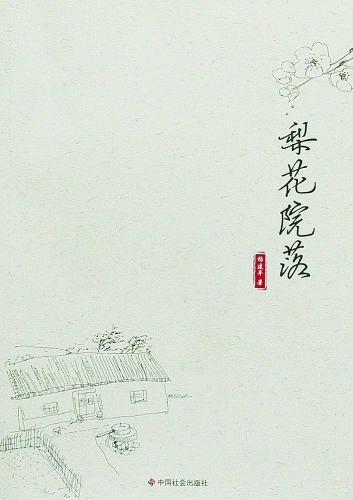 梨花院落
杨建平 著
中国社会出版社